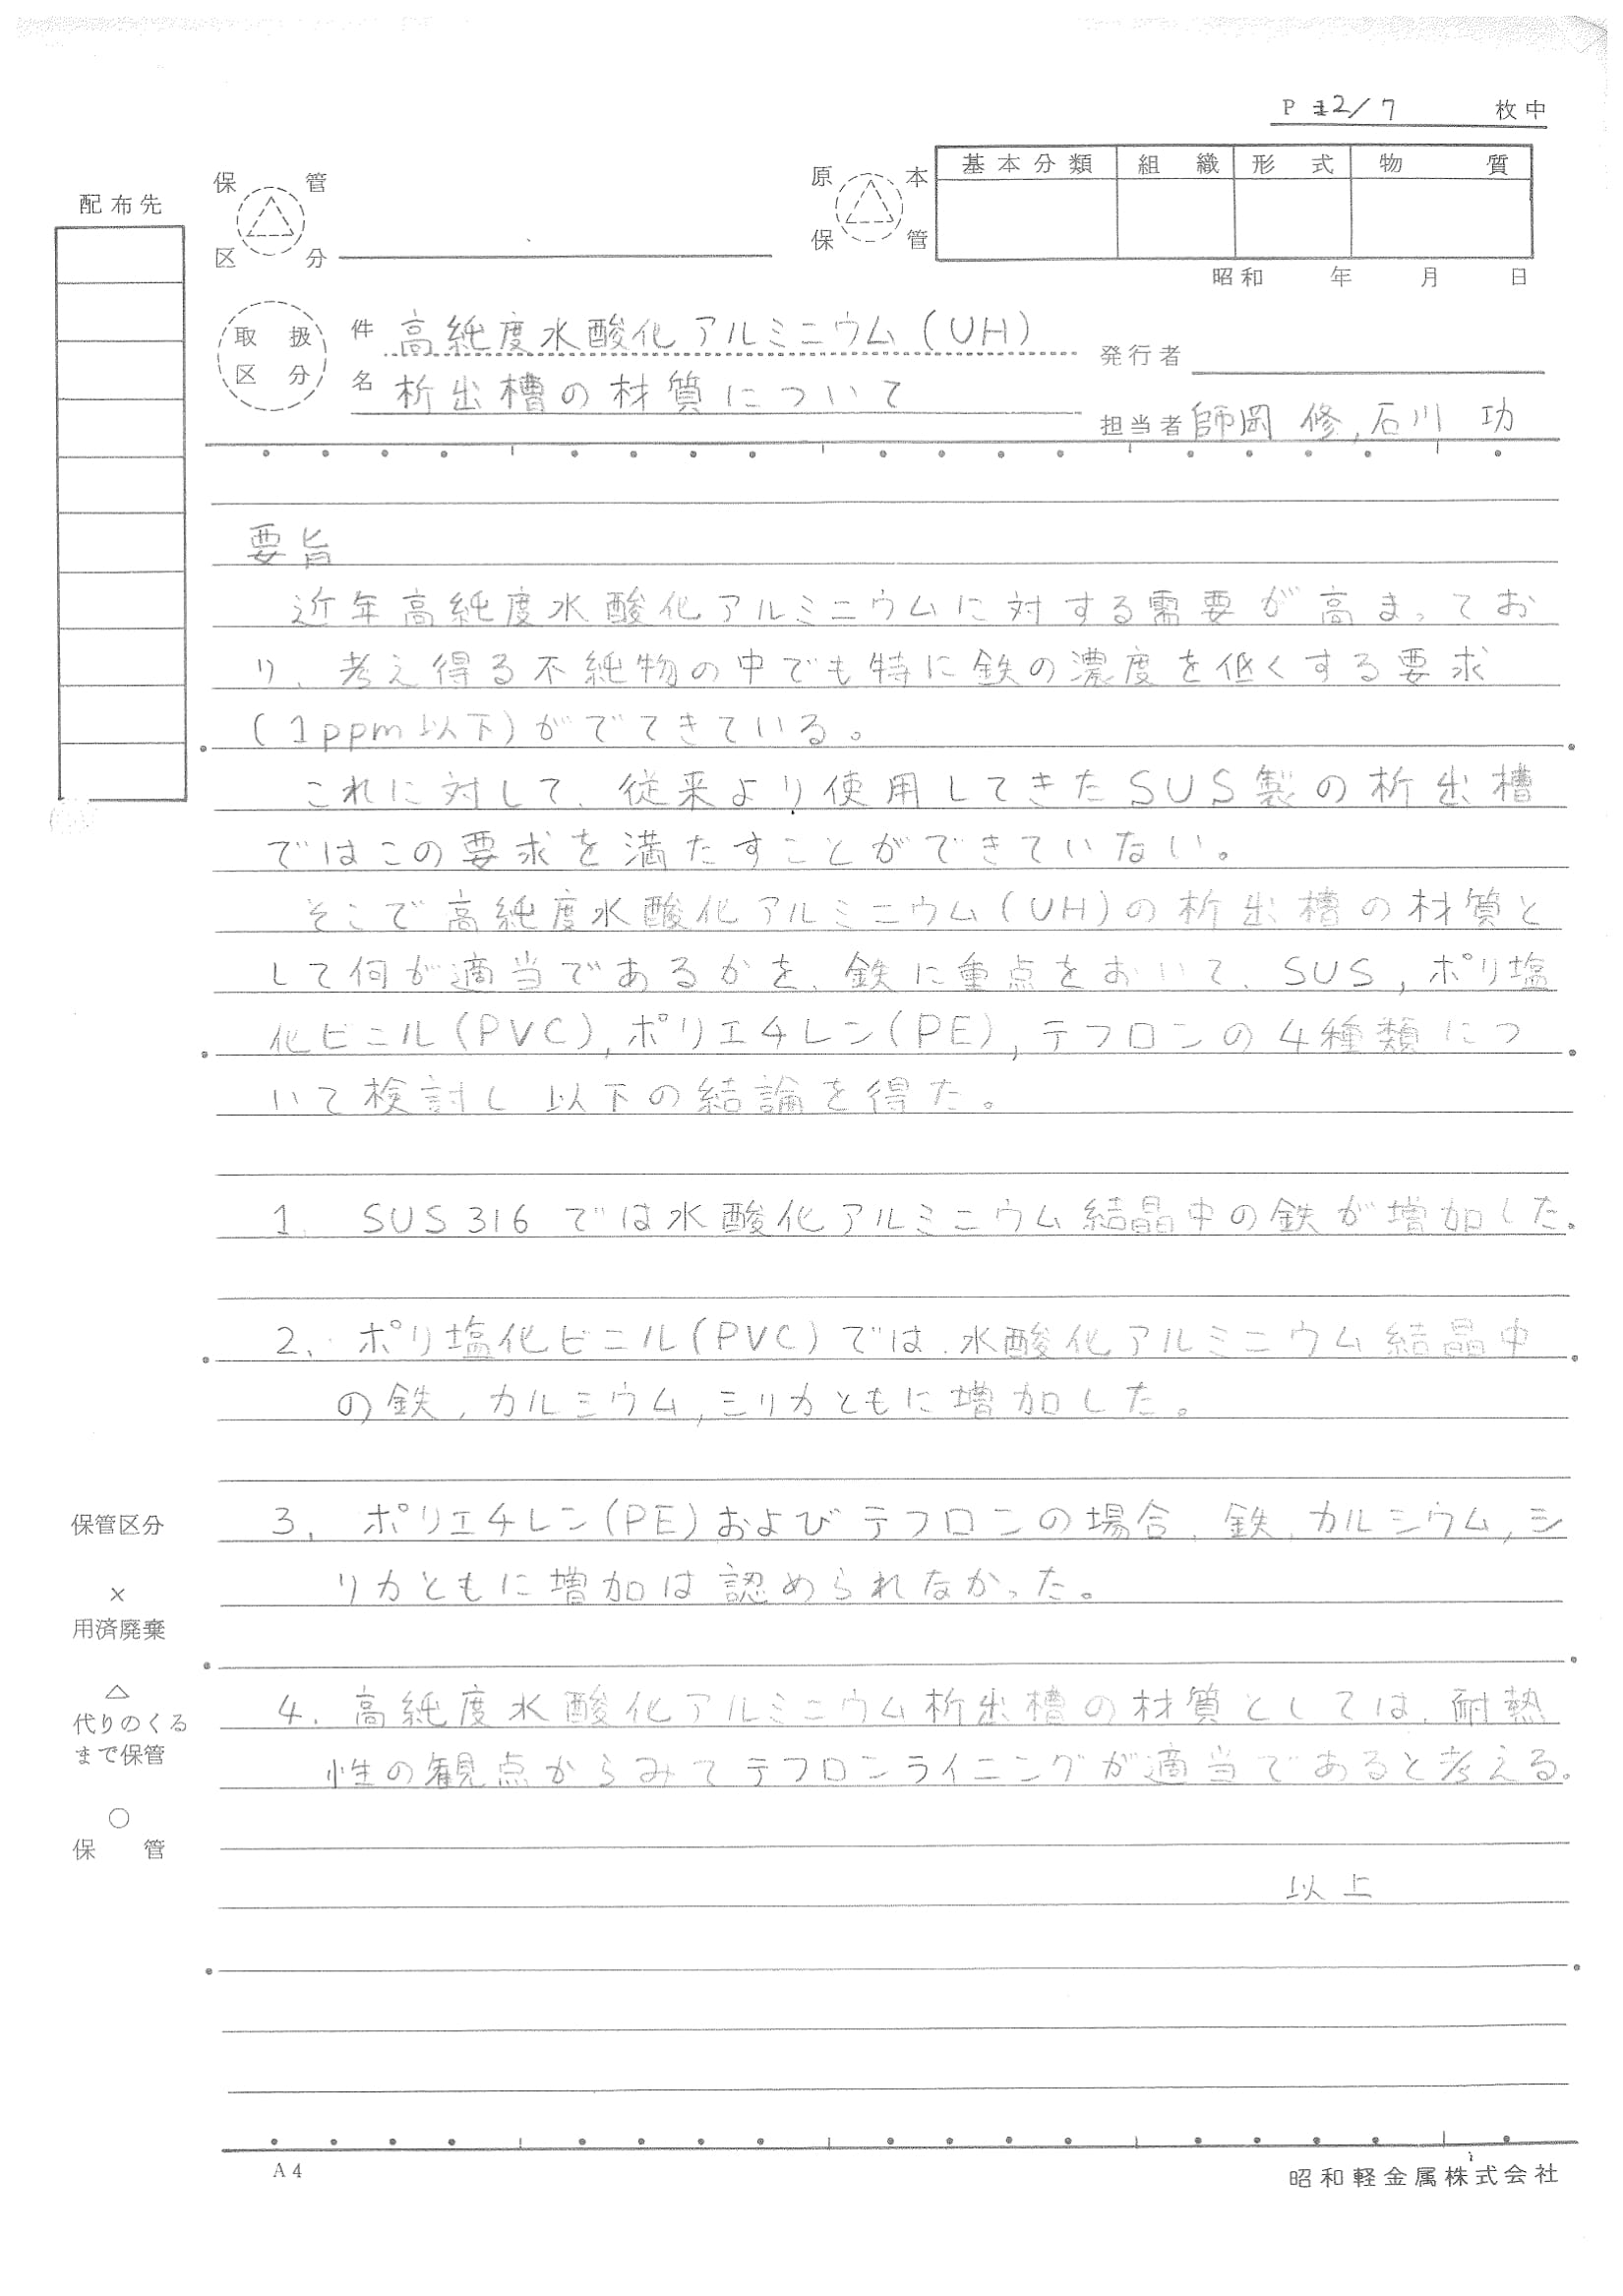 P 2/7 枚中
基本分類 組織 形式 物質
配布先
保管区分
原本保管
昭和 年 月 日
取扱区分
件名 高純度水酸化アルミニウム(UH)
析出槽の材質について
発行者
担当者 師岡 修, 石川 功
要旨
近年高純度水酸化アルミニウムに対する需要が高まってお
り、考え得る不純物の中でも特に鉄の濃度を低くする要求
(1ppm以下)がでてきている。
これに対して、従来より使用してきたSUS製の析出槽
ではこの要求を満たすことができていない。
そこで高純度水酸化アルミニウム(UH)の析出槽の材質と
して何が適当であるかを、鉄に重点をおいて、SUS, ポリ塩
化ビニル(PVC), ポリエチレン(PE), テフロンの4種類につ
いて検討し 以下の結論を得た。
1. SUS316では水酸化アルミニウム結晶中の鉄が増加した。
2. ポリ塩化ビニル(PVC)では、水酸化アルミニウム結晶中
の鉄, カルミウム, シリカともに増加した。
3. ポリエチレン(PE)およびテフロンの場合、鉄, カルシウム, シ
リカともに増加は認められなかった。
4. 高純度水酸化アルミニウム析出槽の材質としては、耐熱
性の観点からみてテフロンライニングが適当であると考える。
以上
保管区分
×
用済廃棄
△
代りのくる
まで保管
○
保管
A4
昭和軽金属株式会社